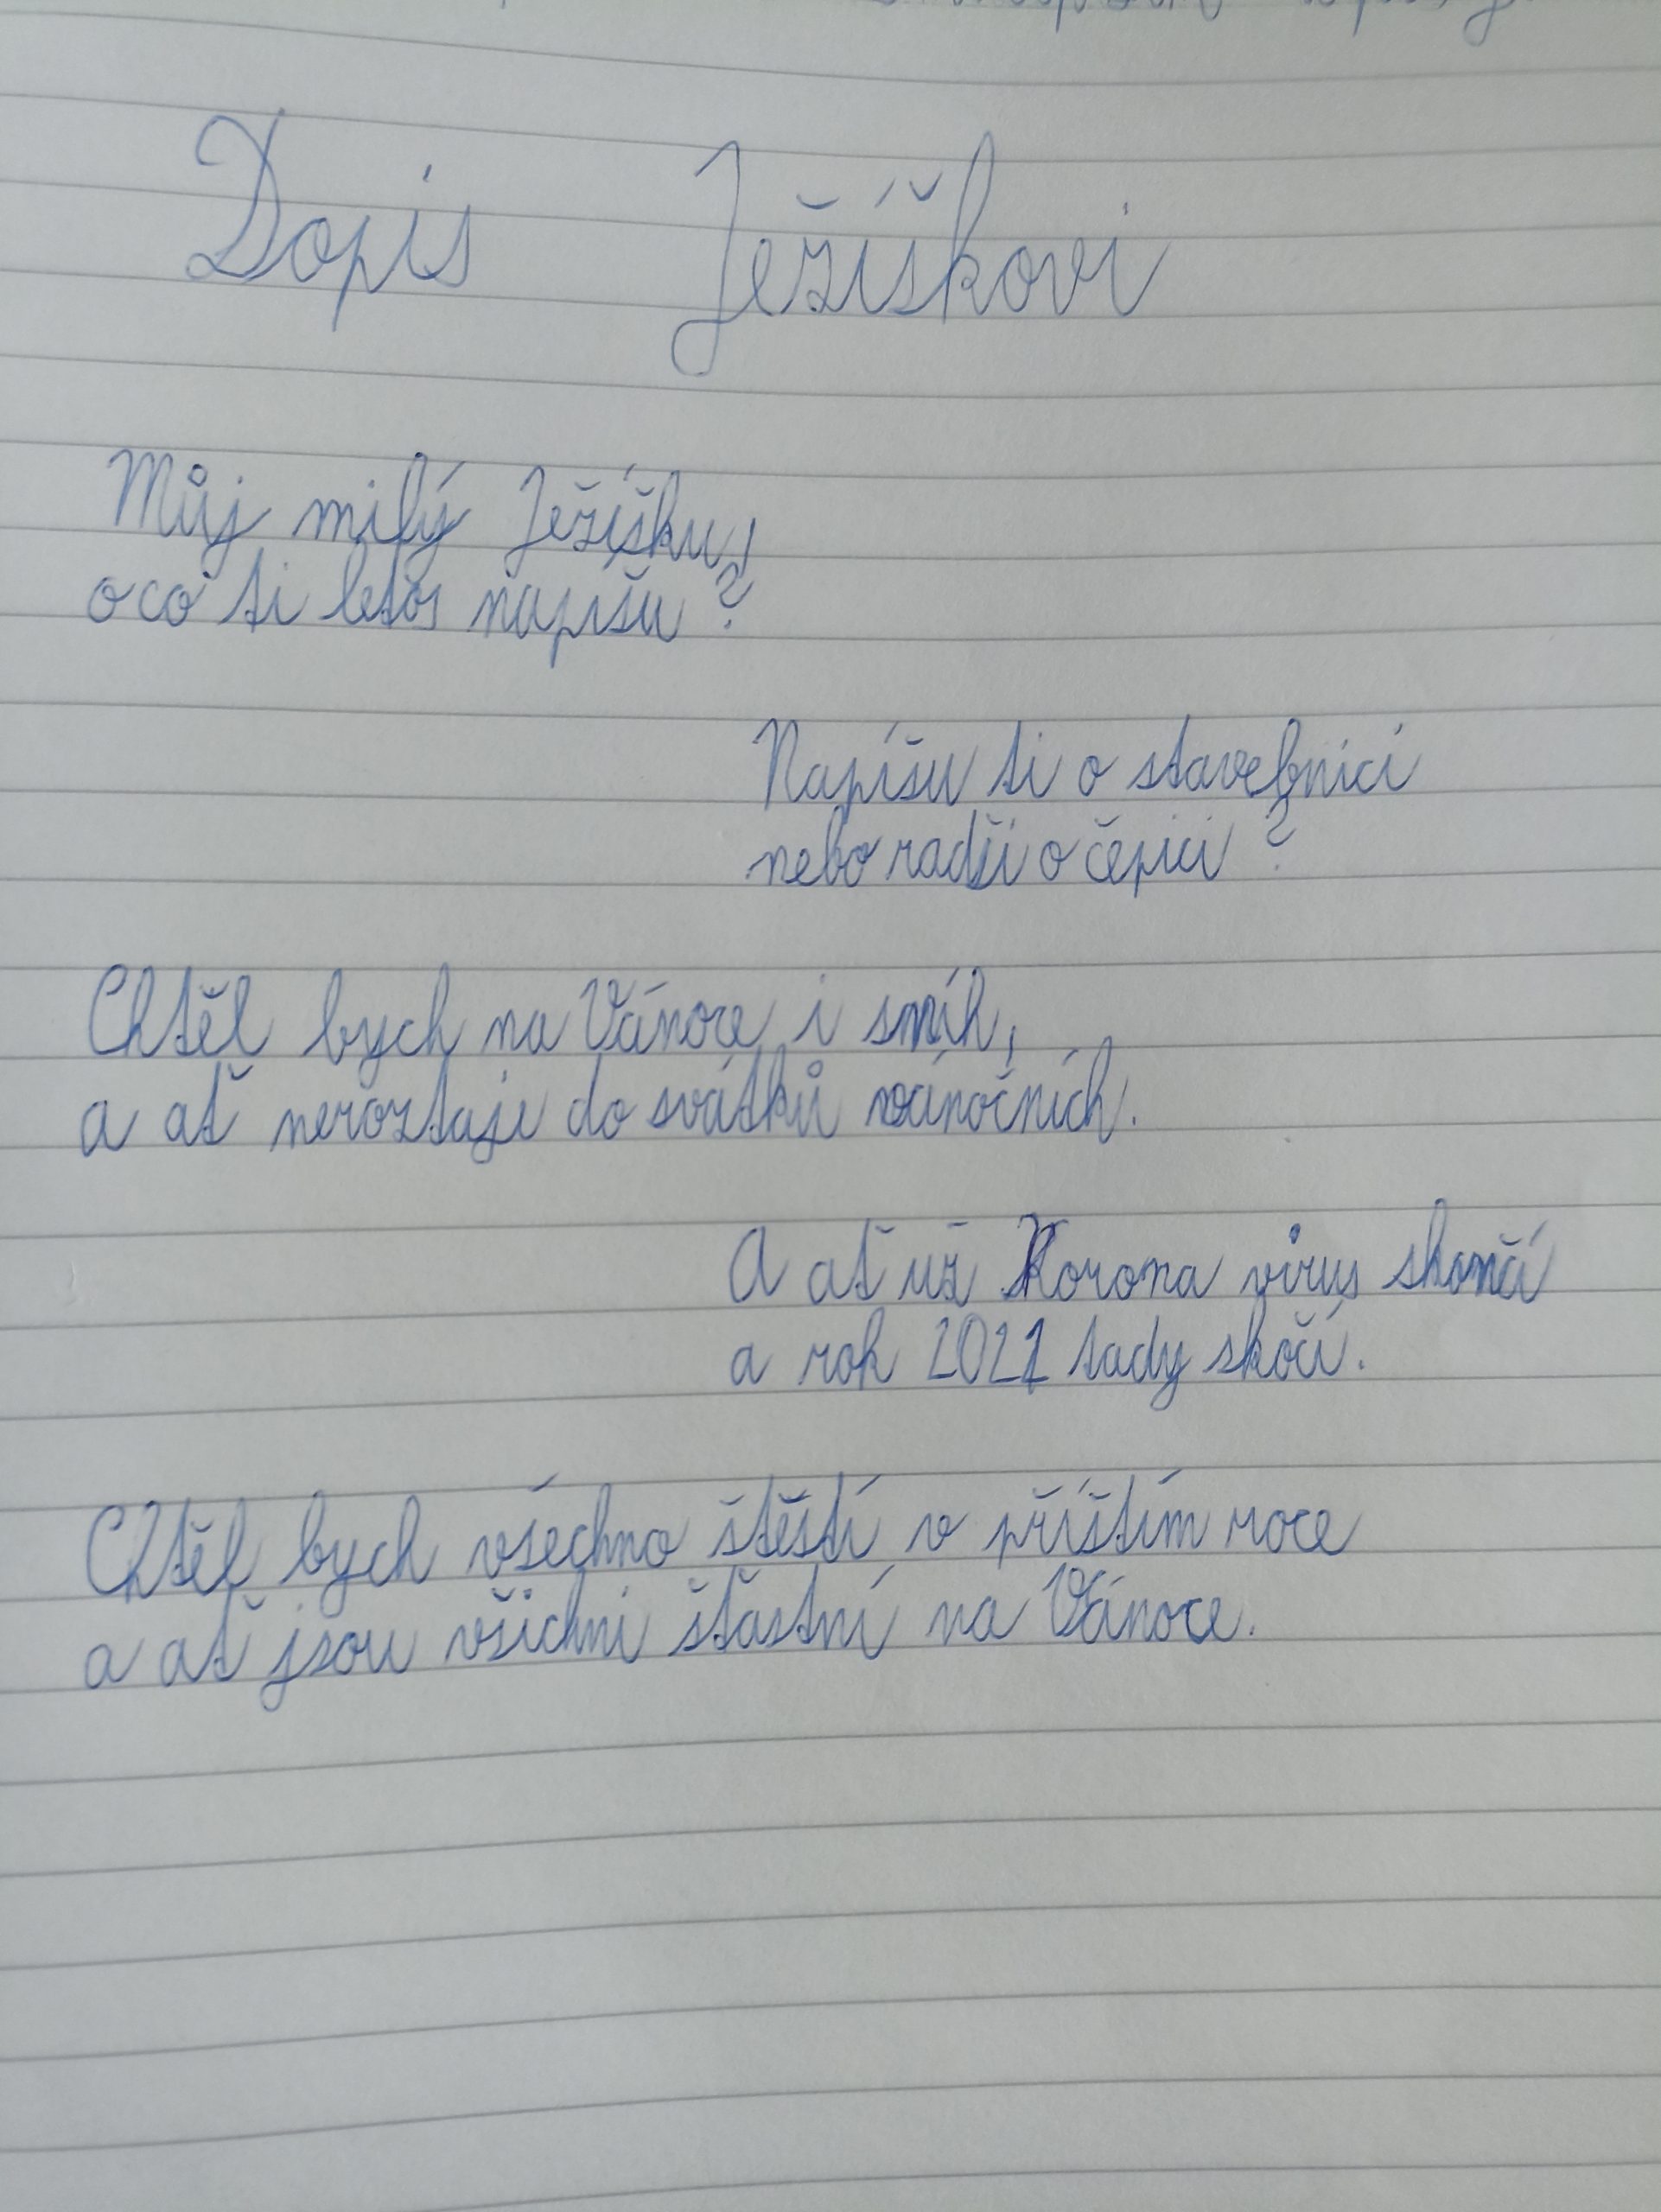 Dopis Ježíškovi
Můj milý Ježíšku!
o co ti letos napíšu?
Napíšu ti o stavebnici
nebo radši o čepici?
Chtěl bych na Vánoce i sníh,
a ať neroztaje do svátků vánočních.
A ať už Korona virus skončí
a rok 2021 tady skočí.
Chtěl bych všechno štěstí v příštím roce
a ať jsou všichni šťastní na Vánoce.